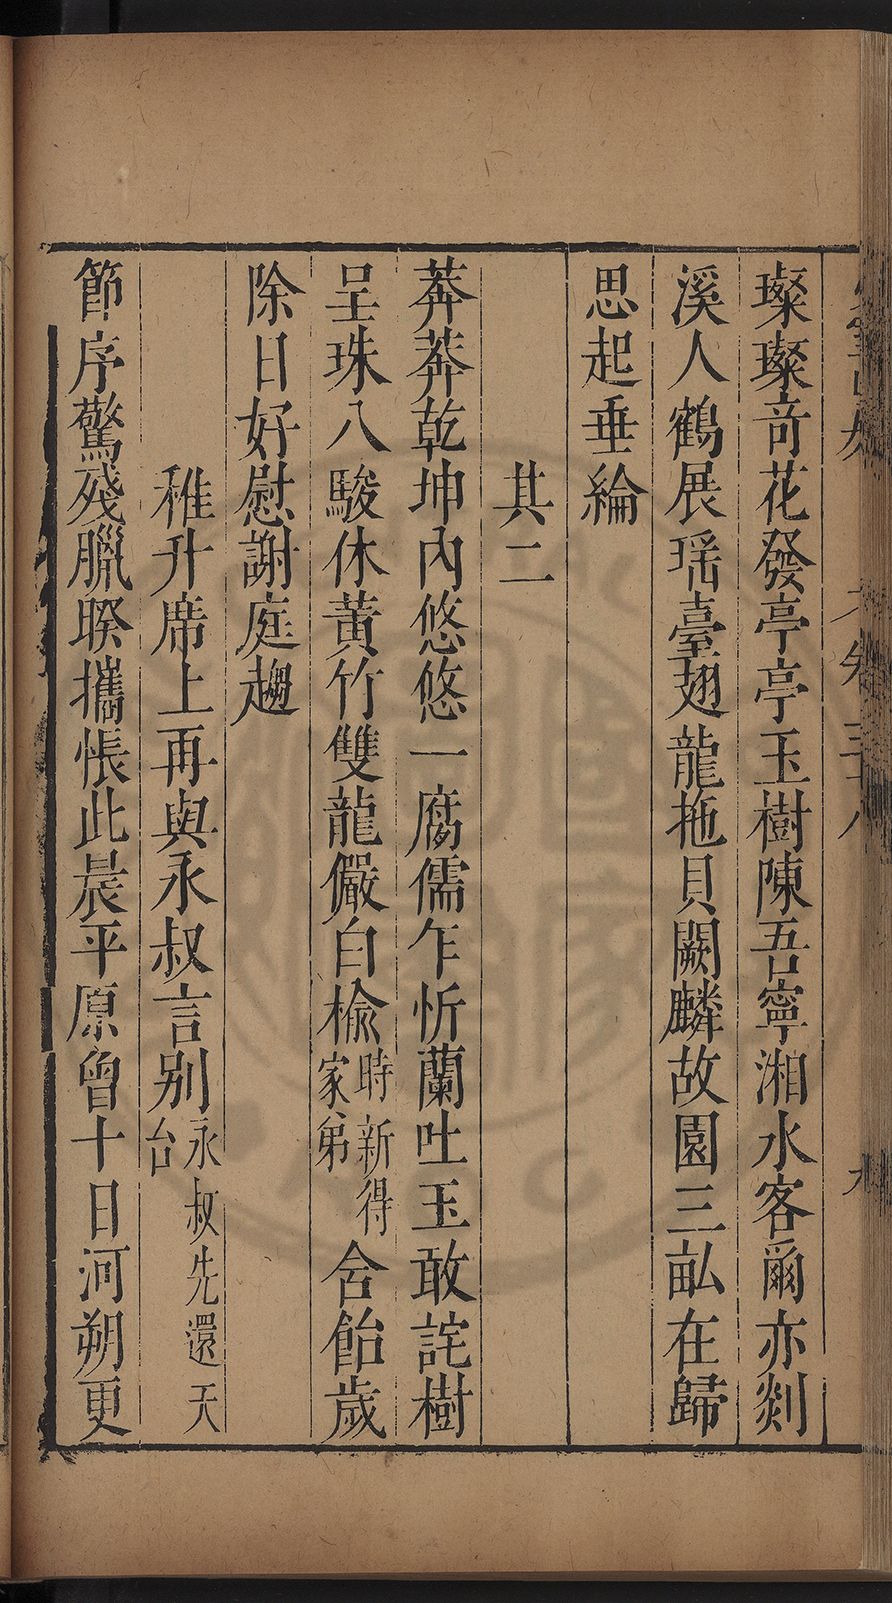 璨璨奇花發亭亭玉樹陳吾寧湘水客爾亦剡
溪人鶴展瑶臺翅龍拖貝闕麟故園三畝在歸
思起垂綸
其二
莽莽乾坤內悠悠一腐儒乍忻蘭吐玉敢詫樹
呈珠八駿休黃竹雙龍儼白榆時新得家弟含飴歲
除日好慰謝庭趨
稚升席上再與永叔言别永叔先還天台
節序驚殘臘睽攜悵此晨平原曾十日河朔更